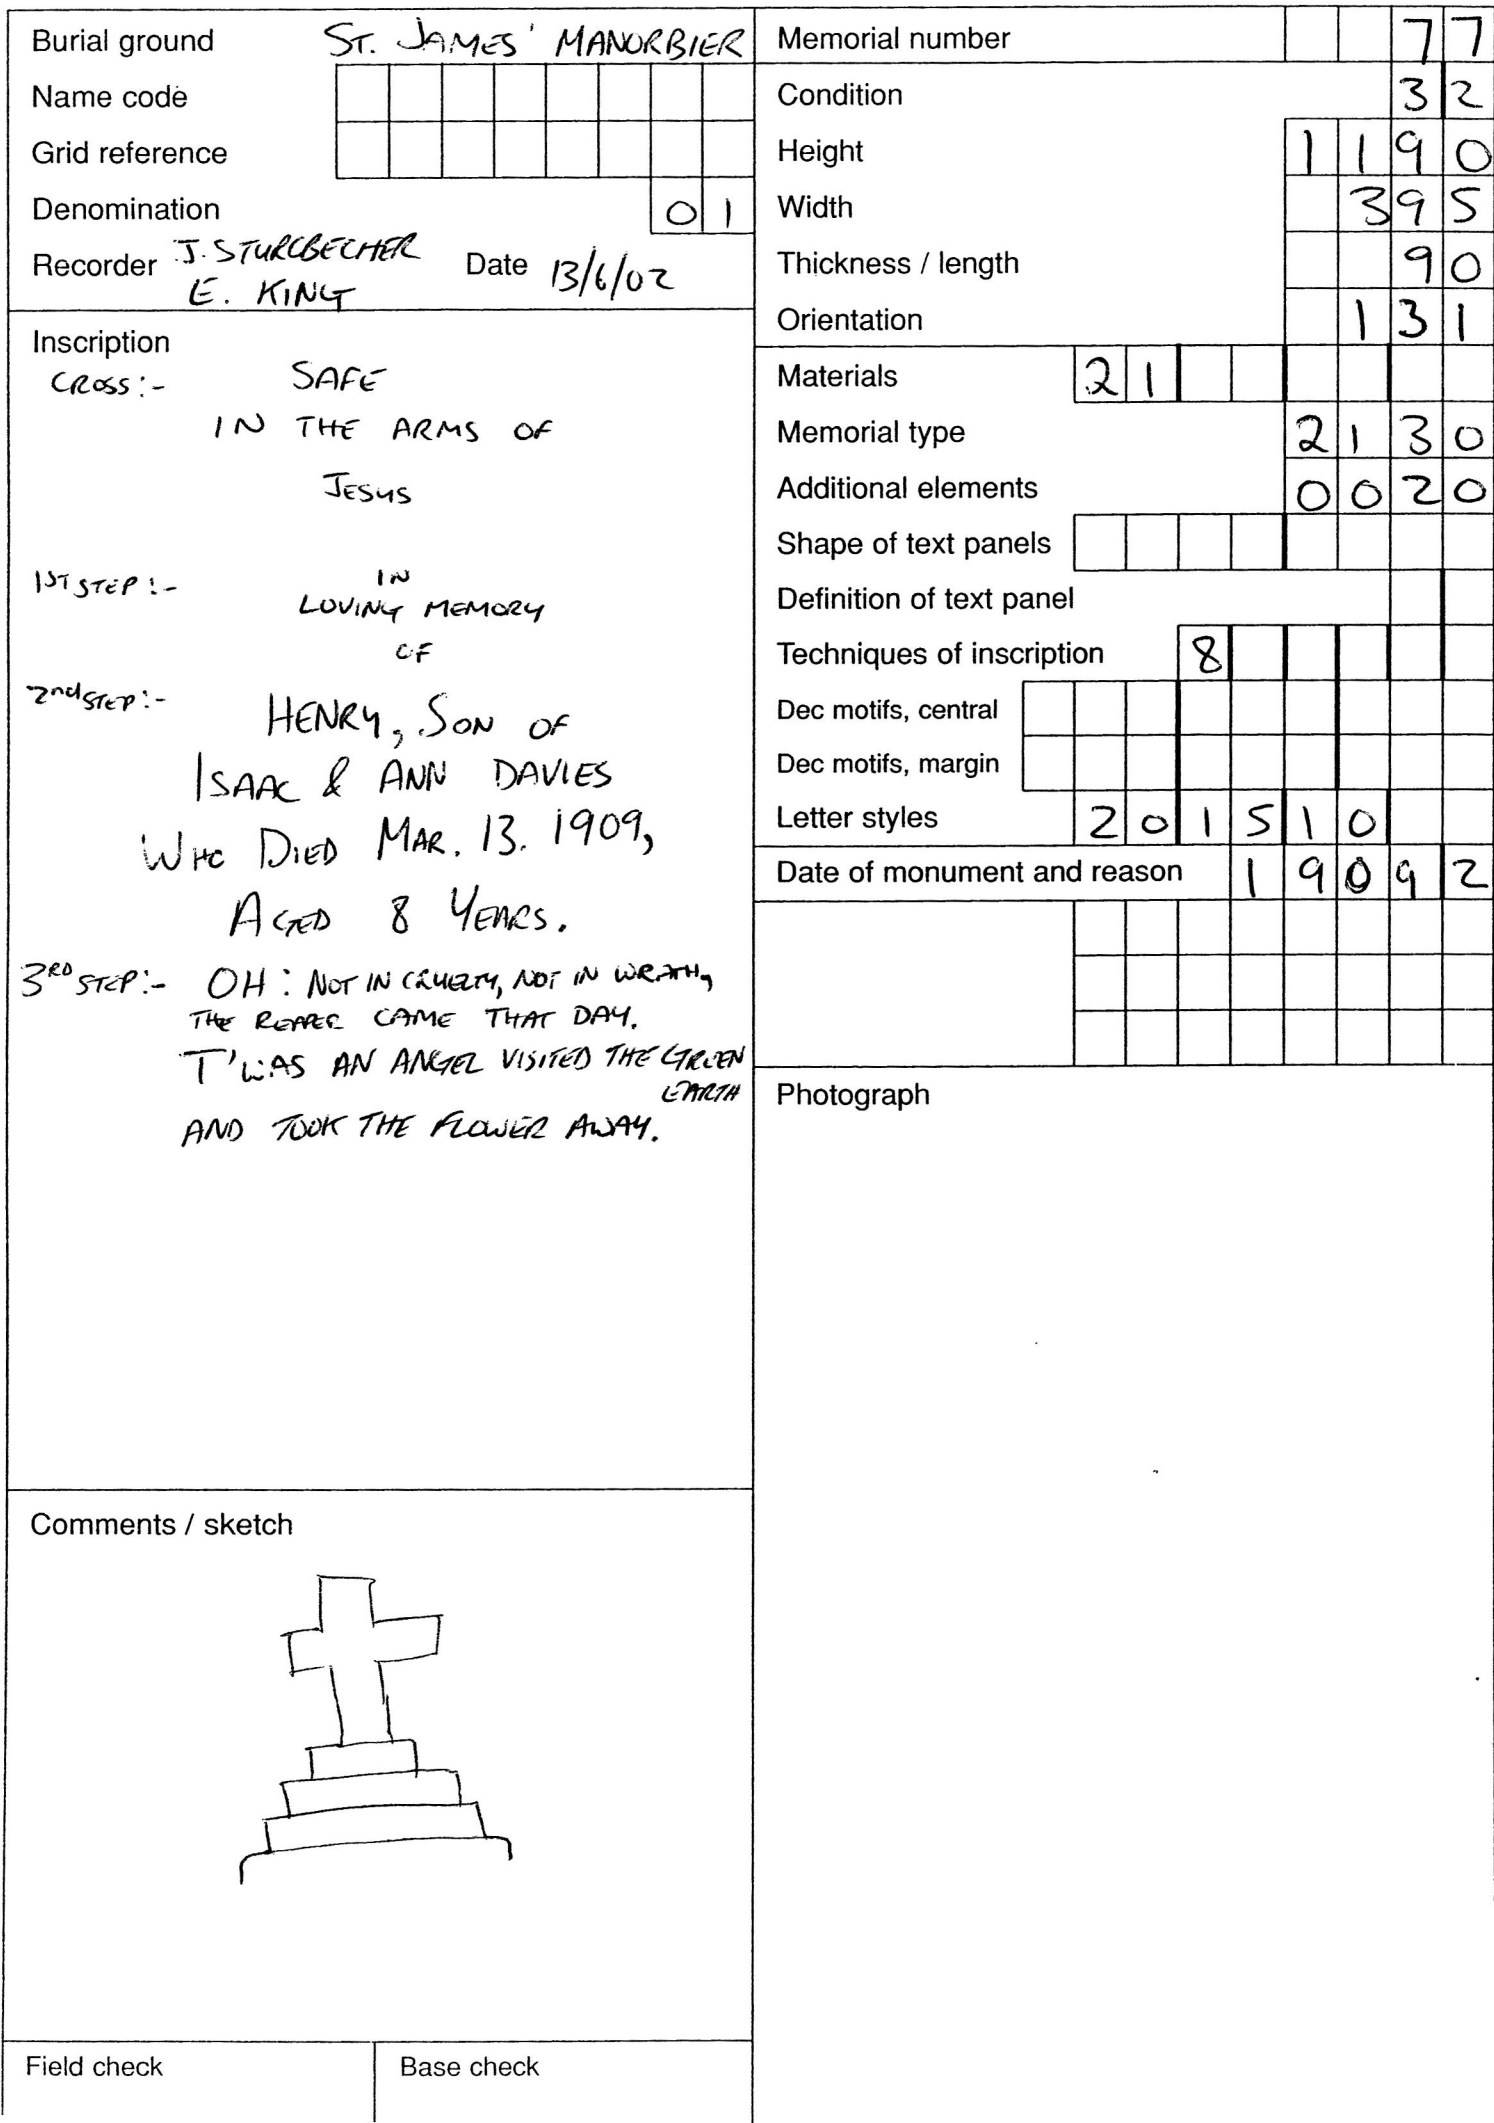 Burial ground ST. JAMES' MANORBIER
Name code
Grid reference
Denomination 01
Recorder J. STURCBECHER Date 13/6/02
E. KING
Inscription
CROSS:- SAFE
IN THE ARMS OF
JESUS
1ST STEP:- IN
LOVING MEMORY
OF
2nd STEP:- HENRY, SON OF
ISAAC & ANN DAVIES
WHO DIED MAR. 13. 1909,
AGED 8 YEARS.
3RD STEP:- OH: NOT IN CRUELTY, NOT IN WRATH,
THE REAPER CAME THAT DAY.
T'WAS AN ANGEL VISITED THE GREEN
EARTH
AND TOOK THE FLOWER AWAY.
Comments / sketch
Field check
Base check
Memorial number 77
Condition 32
Height 1190
Width 395
Thickness / length 90
Orientation 131
Materials 21
Memorial type 2130
Additional elements 0020
Shape of text panels
Definition of text panel
Techniques of inscription 8
Dec motifs, central
Dec motifs, margin
Letter styles 201510
Date of monument and reason 19092
Photograph